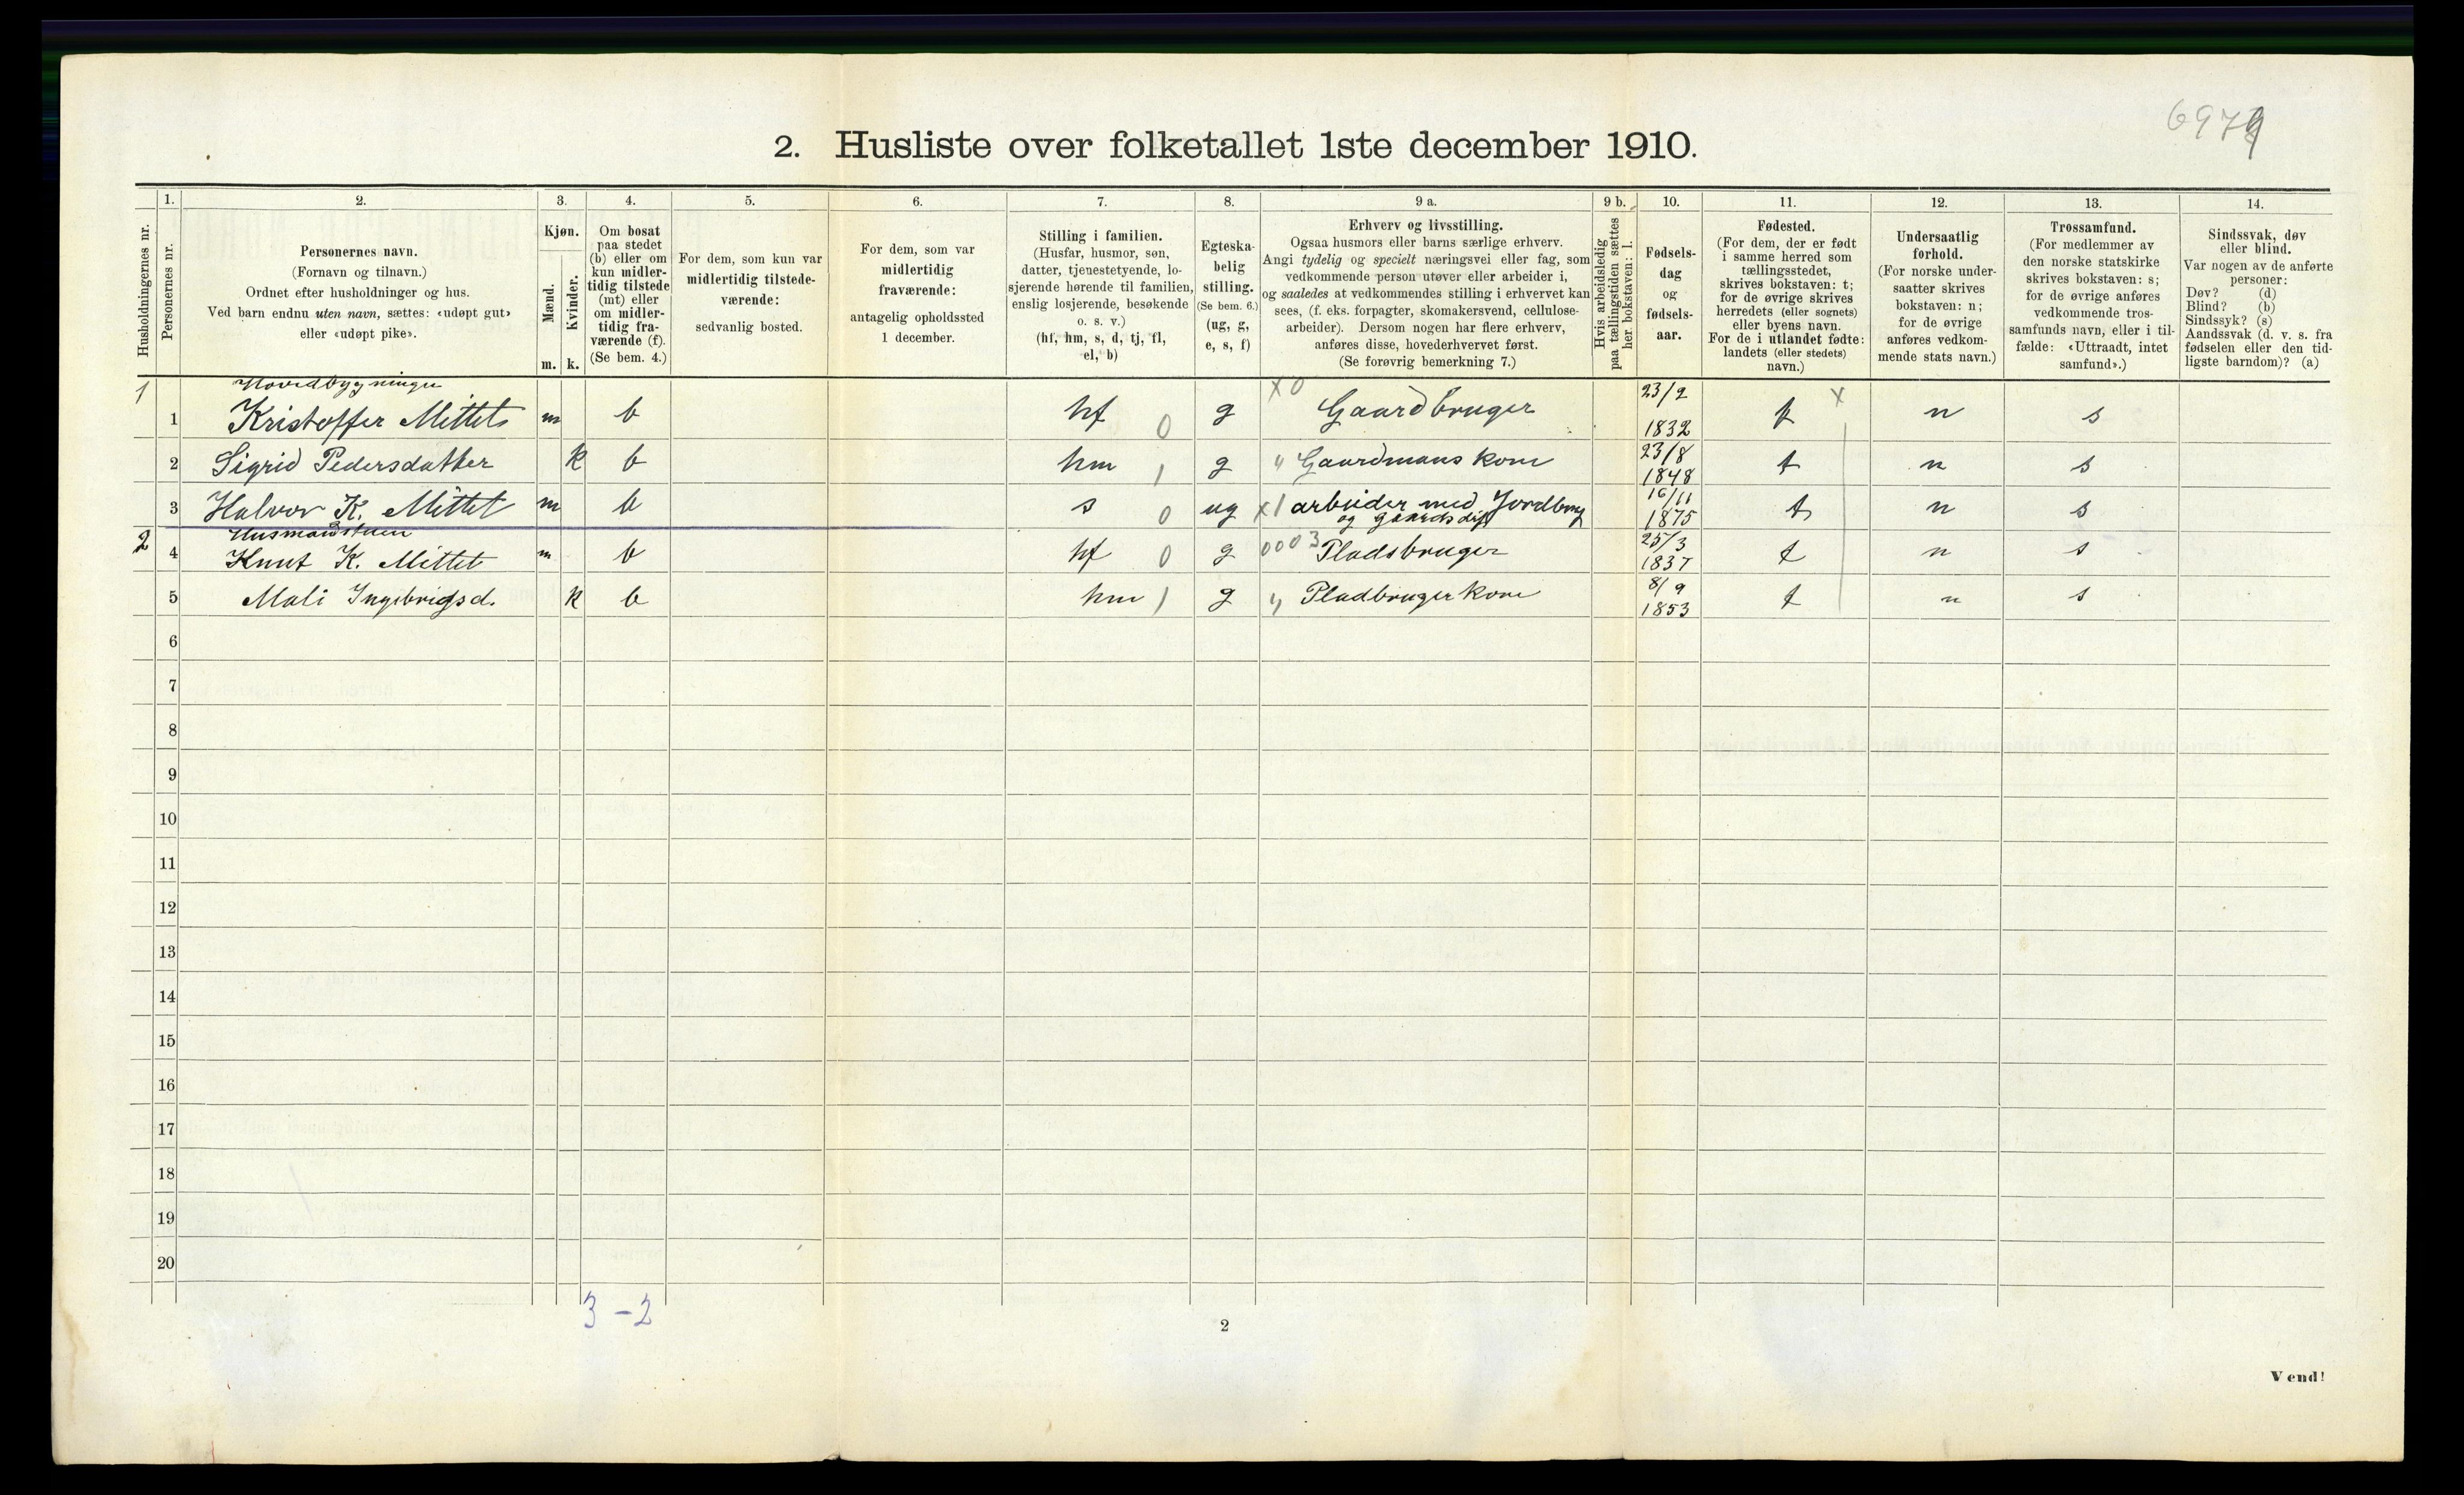 6979
2. Husliste over folketallet 1ste december 1910.
Husholdningernes nr.
1.
Personernes nr.
2.
Personernes navn.
(Fornavn og tilnavn.)
Ordnet efter husholdninger og hus.
Ved barn endnu uten navn, sættes: «udøpt gut»
eller «udøpt pike».
3.
Kjøn.
Mænd.
Kvinder.
m. k.
4.
Om bosat
paa stedet
(b) eller om
kun midler-
tidig tilstede
(mt) eller
om midler-
tidig fra-
værende (f).
(Se bem. 4.)
5.
For dem, som kun var
midlertidig tilstede-
værende:
sedvanlig bosted.
6.
For dem, som var
midlertidig
fraværende:
antagelig opholdssted
1 december.
7.
Stilling i familien.
(Husfar, husmor, søn,
datter, tjenestetyende, lo-
sjerende hørende til familien,
enslig losjerende, besøkende
o. s. v.)
(hf, hm, s, d, tj, fl,
el, b)
8.
Egteska-
belig
stilling.
(Se bem. 6.)
(ug, g,
e, s, f)
9 a.
Erhverv og livsstilling.
Ogsaa husmors eller barns særlige erhverv.
Angi tydelig og specielt næringsvei eller fag, som
vedkommende person utøver eller arbeider i,
og saaledes at vedkommendes stilling i erhvervet kan
sees, (f. eks. forpagter, skomakersvend, cellulose-
arbeider). Dersom nogen har flere erhverv,
anføres disse, hovederhvervet først.
(Se forøvrig bemerkning 7.)
9 b.
Hvis arbeidsledig
paa tællingstiden sættes
her bokstaven: l.
10.
Fødsels-
dag
og
fødsels-
aar.
11.
Fødested.
(For dem, der er født
i samme herred som
tællingsstedet,
skrives bokstaven: t;
for de øvrige skrives
herredets (eller sognets)
eller byens navn.
For de i utlandet fødte:
landets (eller stedets)
navn.)
12.
Undersaatlig
forhold.
(For norske under-
saatter skrives
bokstaven: n;
for de øvrige
anføres vedkom-
mende stats navn.)
13.
Trossamfund.
(For medlemmer av
den norske statskirke
skrives bokstaven: s;
for de øvrige anføres
vedkommende tros-
samfunds navn, eller i til-
fælde: «Uttraadt, intet
samfund».)
14.
Sindssvak, døv
eller blind.
Var nogen av de anførte
personer:
Døv? (d)
Blind? (b)
Sindssyk? (s)
Aandssvak (d. v. s. fra
fødselen eller den tid-
ligste barndom)? (a)
Hovedbygningen
1 1 Kristoffer Mittet m b hf 0 g x0 Gaardbruger 23/2 1832 t x n s
2 Sigrid Pedersdatter k b hm 1 g " Gaardmans kone 23/8 1848 t n s
3 Halvor K. Mittet m b s 0 ug x1 arbeider med Jordbrug 16/11 1875 t n s
og gaardsdrift
Husmandstuen
2 4 Knut K. Mittet m b hf 0 g 0003 Pladsbruger 25/3 1837 t n s
5 Mali Ingebrigsd. k b hm 1 g " Pladbruger kone 8/9 1853 t n s
6
7
8
9
10
11
12
13
14
15
16
17
18
19
20
3-2
2
Vend!